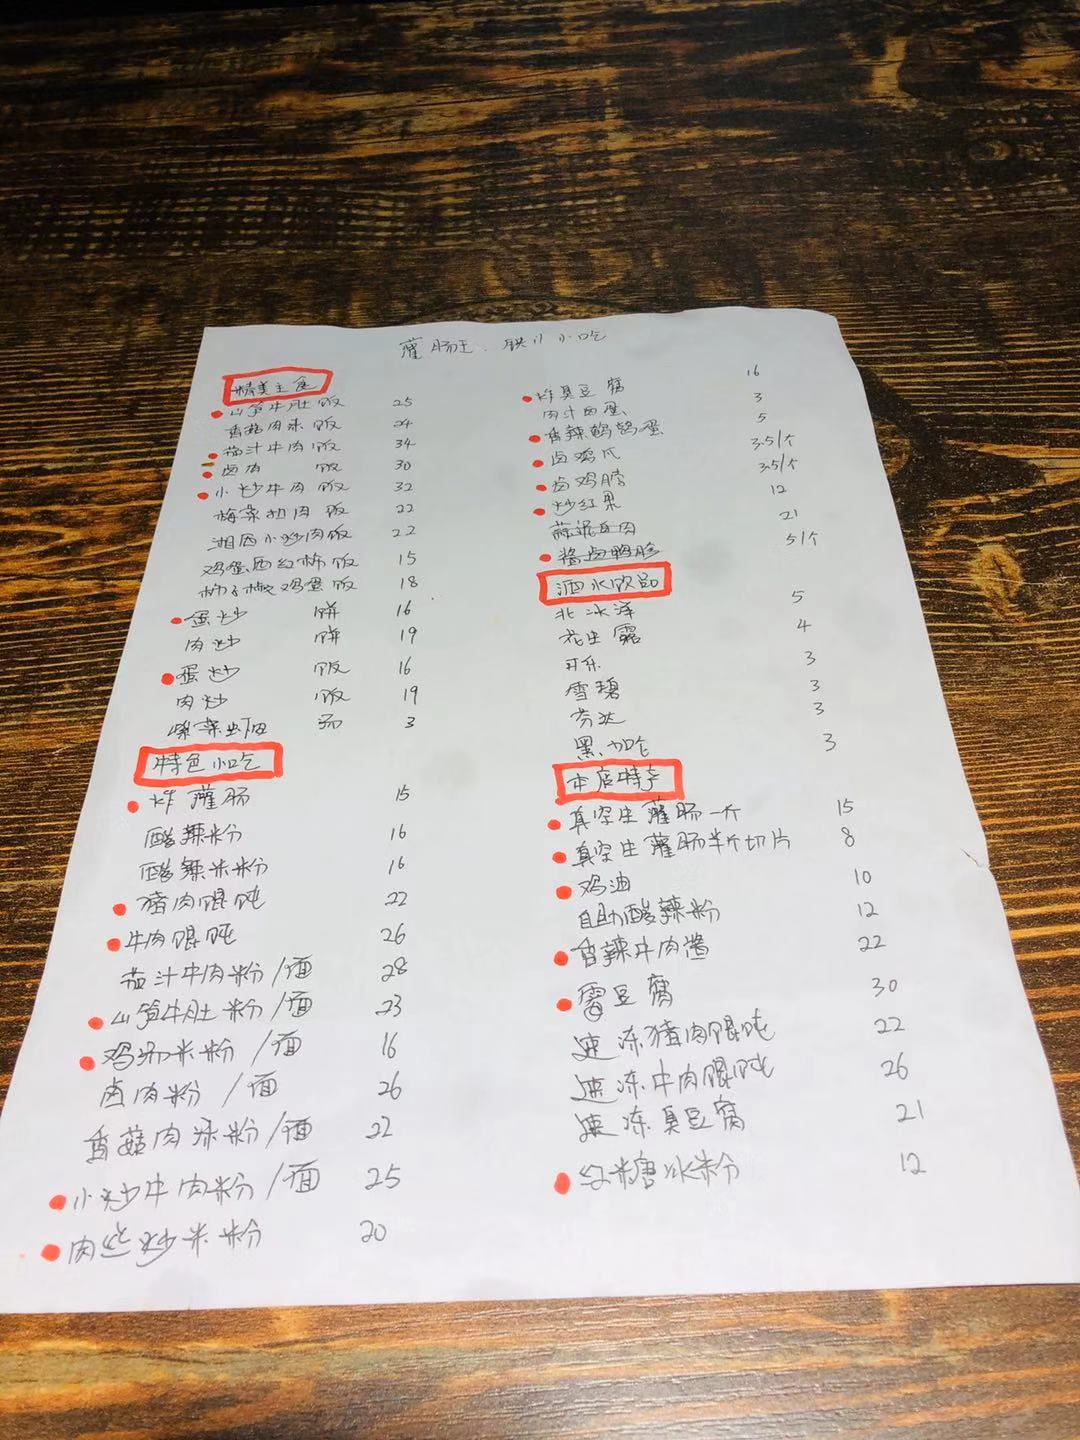 灌肠王.陕小小吃
精美主食
山笋牛肚饭 25
香菇肉末饭 24
茄汁牛肉饭 34
卤肉 饭 30
小炒牛肉饭 32
梅菜扣肉饭 22
湘西小炒肉饭 22
鸡蛋西红柿饭 15
柿子椒鸡蛋饭 18
蛋炒 饼 16
肉炒 饼 19
蛋炒 饭 16
肉炒 饭 19
紫菜虾皮 汤 3
特色小吃
炸灌肠 15
酸辣粉 16
酸辣米粉 16
猪肉馄饨 22
牛肉馄饨 26
茄汁牛肉粉/面 28
山笋牛肚粉/面 23
鸡汤米粉/面 16
卤肉粉/面 26
香菇肉末粉/面 22
小炒牛肉粉/面 25
肉丝炒米粉 20
炸臭豆腐 16
肉汁卤蛋 3
香辣鹌鹑蛋 5
卤鸡爪 3.5/个
卤鸡脖 3.5/个
炒红果 12
蒜泥白肉 21
酱卤鸭胗 5/个
酒水饮品
北冰洋 5
花生露 4
可乐 3
雪碧 3
芬达 3
黑加仑 3
本店特产
真空生灌肠一斤 15
真空生灌肠半斤切片 8
鸡油 10
自助酸辣粉 12
香辣牛肉酱 22
雷豆腐 30
速冻猪肉馄饨 22
速冻牛肉馄饨 26
速冻臭豆腐 21
红糖冰粉 12